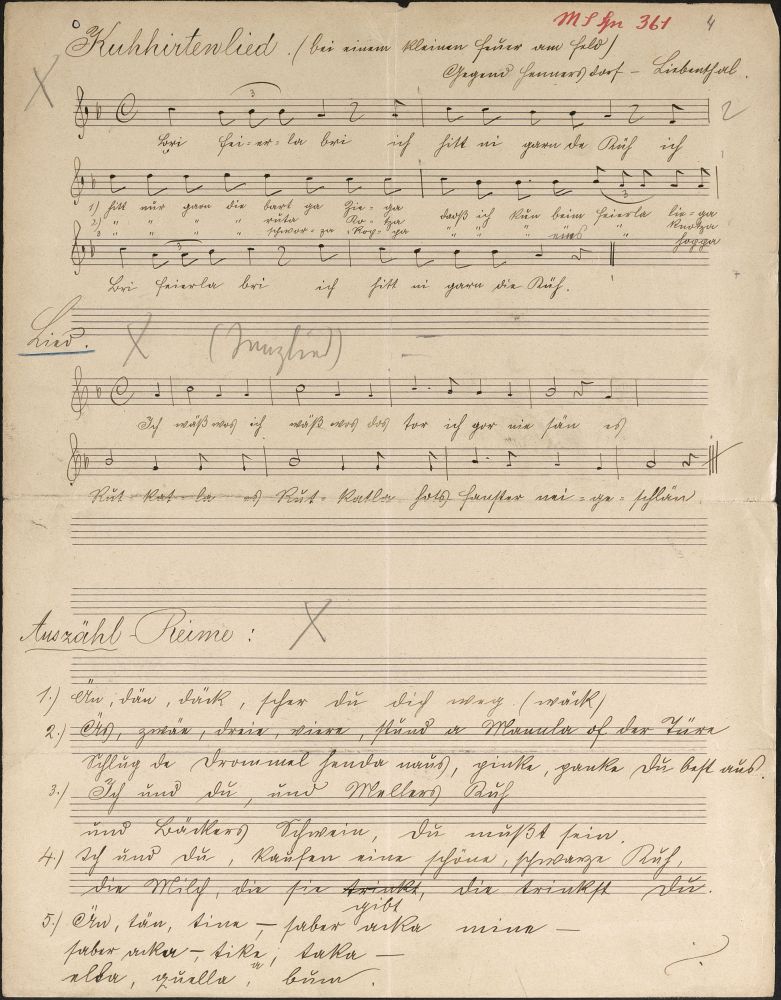 MS Hn 361 4
Kuhhirtenlied. (bei einem kleinen Feuer am Feld)
Gegend Hennersdorf – Liebenthal.
Bri Fei-er-la bri ich hitt ni garn de Küh ich
1) hitt nur garn die bart ga Zie-ga doß ich kun beim Feierla lie-ga
2) " " " " ruta Ko-tza " " " " " knotza
3) " " " " schwor-za Kop-pa " " " " hoppa
Bri Feierla bri ich hitt ni garn die Küh.
Lied. (Tanzlied)
Ich wäß wos ich wäß wos dos tor ich gor nie sän es
Rut-kat-la es Rut-katla hots Fanster nei-ge-schlän
Auszähl-Reime:
1.) Än, dän, däck, scher du dich weg (wäck)
2.) Äs, zwäe, dreie, viere, stund a Mannla of der Türe
Schlug de Drommel henda naus, pinke, panke du best aus.
3.) Ich und du, und Mellers Kuh
und Bäckers Schwein, du mußt sein.
4.) Ich und du, kaufen eine schöne, schwarze Kuh,
die Milch, die sie trinkt, die trinkst du.
gibt
5.) Än, tän, tine – saber acka mine –
saber acka – tike, taka –
elka, quella, bum.